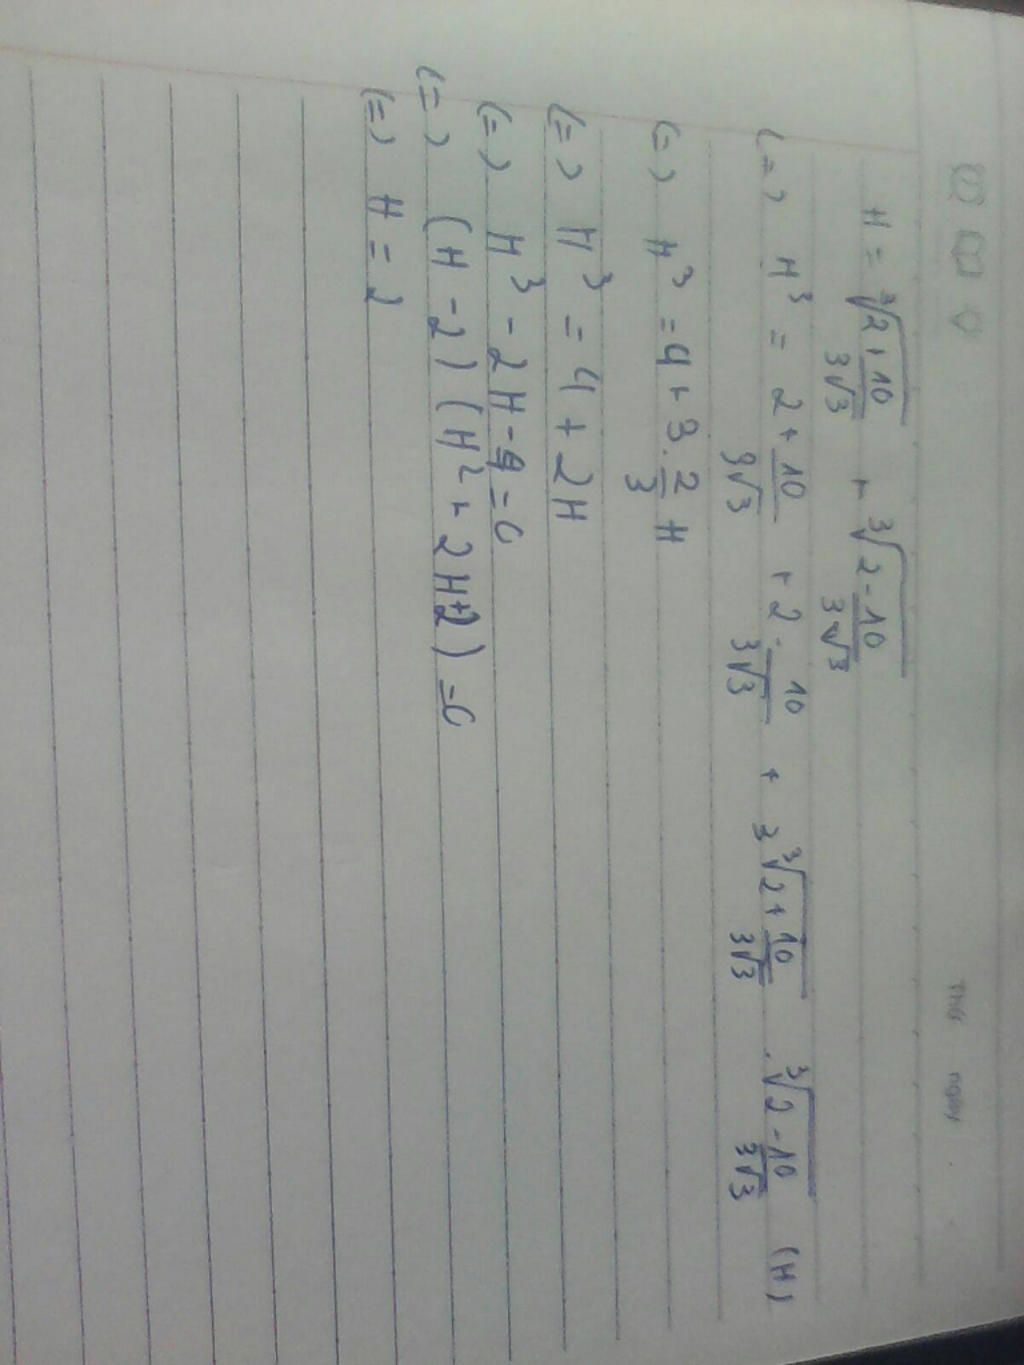 Thứ ngày
H = ∛(2 + 10/(3√3)) + ∛(2 - 10/(3√3))
(=) H³ = 2 + 10/(3√3) + 2 · 10/(3√3) + 3∛(2 + 10/(3√3)) · ∛(2 - 10/(3√3)) (H)
(=) H³ = 4 + 3 · 2/3 H
(=) H³ = 4 + 2H
(=) H³ - 2H - 4 = 0
(=) (H - 2) (H² + 2H + 2) = 0
(=) H = 2